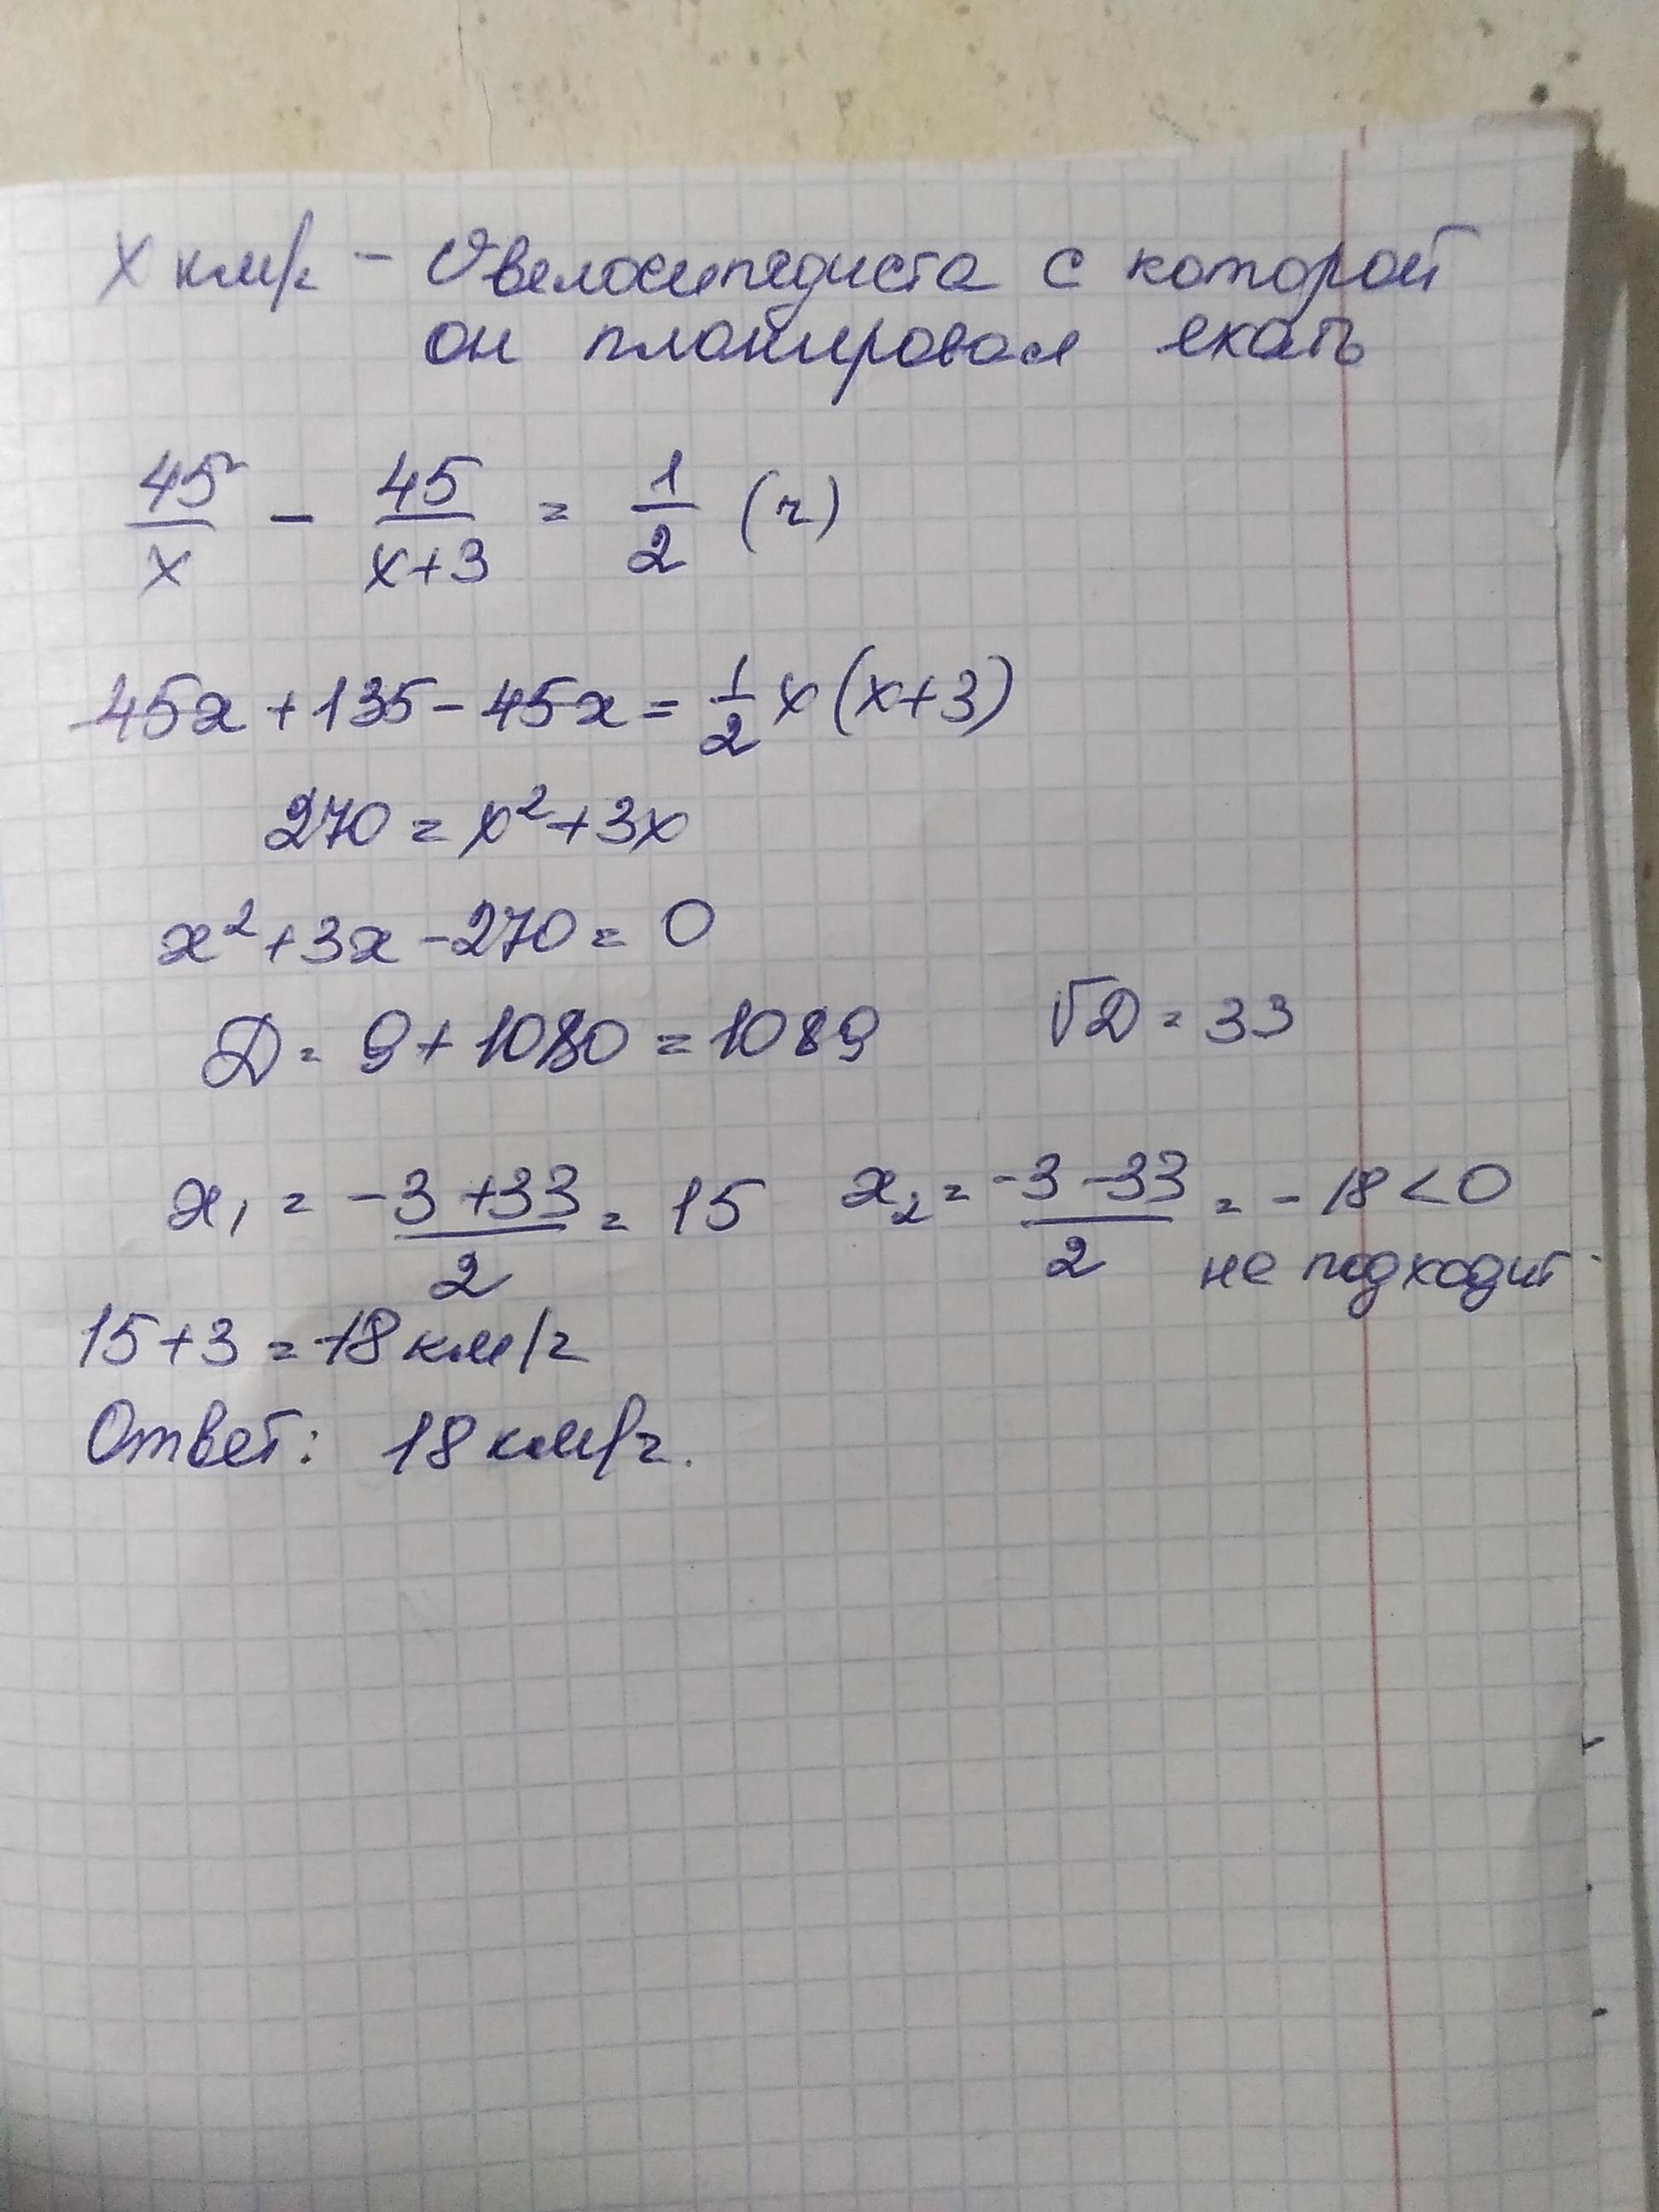 x км/ч - V велосипедиста с которой
он планировал ехать
45/x - 45/(x+3) = 1/2 (ч)
45x + 135 - 45x = 1/2 x (x+3)
270 = x² + 3x
x² + 3x - 270 = 0
D = 9 + 1080 = 1089 √D = 33
x₁ = (-3 + 33)/2 = 15 x₂ = (-3 - 33)/2 = -18 < 0
не подходит
15 + 3 = 18 км/ч
Ответ: 18 км/ч.